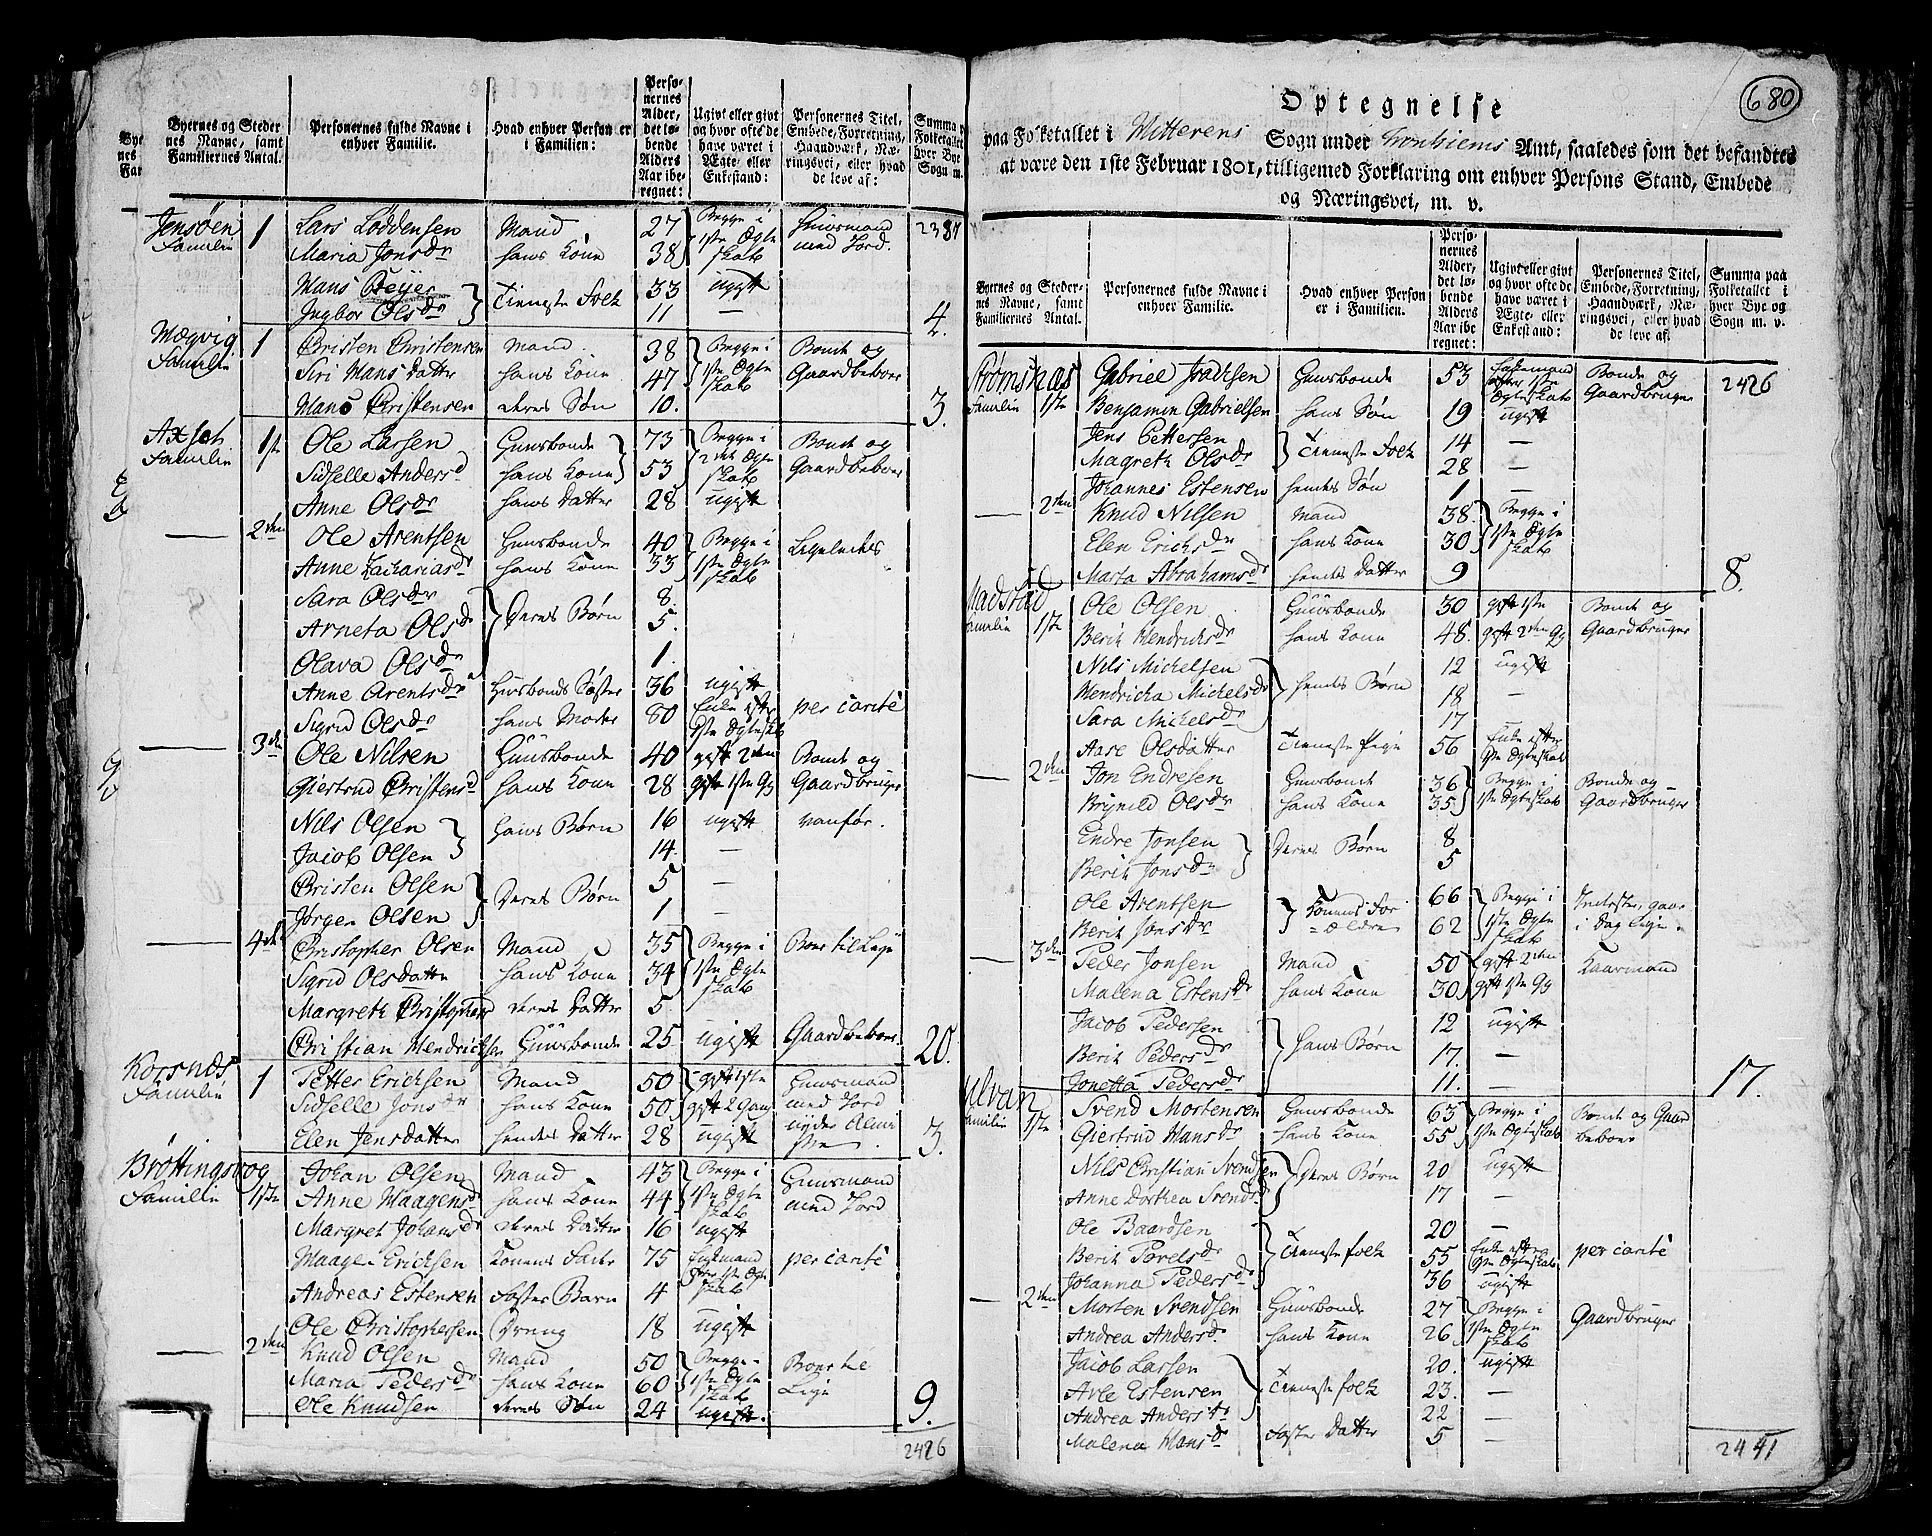 Bye
nes
Far
Byernes og Steder
nes Navne, samt
Familiernes Antal.
Personernes fulde Navne i
enhver Familie.
Hvad enhver Person er
i Familien:
Perso-
nernes
Alder,
det lø-
bende
Alders
Aar ibe-
regnet:
Ugivt eller givt
og hvor ofte de
have været i
Ægte- eller
Enkestand:
Personernes Titel,
Embede, Forretning,
Haandværk, Næ-
ringsvei, eller hvad
de leve af:
Summa
Folketallet
hver Bye
Sogn m.
Jensøen 1 Lars Loddensen Mand 27 Begge i Huusmand 2387
Familie Maria Jonsdr hans Kone 38 1ste Ægte med Jord.
skab
Hans Beÿer Tieneste Folk 33 ugift
Ingbor Olsdr 11 — 4.
1 Christen Christensen Mand 38 Begge i Bonde og
Familie Siri Hans datter hans Kone 47 1ste Ægte Gaardbeboer
skab
Hans Christensen deres Søn 10. 3.
Axset 1ste Ole Larsen Huusbonde 73 Begge i Bonde og
Familie Sidselle Andersd hans Kone 53 2det Ægte Gaardbeboer
skab
Anne Olsdr hans Datter 28 ugift
— 2den Ole Arentsen Huusbonde 40 Begge i Ligeledes
Anne Zachariasdr hans Kone 53 1ste Ægte
skab
Sara Olsdr 8.
Arneta Olsd Deres Børn 5.
Olava Olsdr 1.
Anne Arentsdr Huusbonds Søster 36 ugift
Sigrid Olsdr hans Moder 80 Enke efter per carité
1ste Ægteskab
— 3die Ole Nilsen Huusbonde 40 gift 2den Bonde og
Giertrud Christensd hans Kone 28 gift 1ste Gg Gaardbruger
Nils Olsen hans Børn 16 ugift vanför.
Jacob Olsen 14. —
Christen Olsen Deres Børn 5 —
Jørgen Olsen 1 —
— 4de Christopher Olsen Mand 35 Begge i Boer til Leje
Sigrid Olsdatter hans Kone 34 1ste Ægte
skab
Margreth Christophersd deres Datter 5
Christian Hendrichsen Huusbonde 25 ugift Gaardbeboer 20.
Korsnes 1 Petter Ericksen Mand 50 gift 1ste Huusmand
Familie Sidselle Jonsdr hans Kone 50 gift 2 Gang med Jord
Elen Jensdatter hendes Datter 28 ugift 3.
Brøttingsvog Johan Olsen Mand 43 Begge i Huusmand
Familie 1ste Anne Haagensd hans Kone 44 1ste Ægte med Jord
skab
Margret Johansd deres Datter 16 ugift
Haagen Ericksen Konens Fader 75 Enkemand per carité
efter 1ste Ægte
skab
Andreas Estensen Foster Barn 4
Ole Christophersen Dreng 18 ugift
— 2den Knud Olsen Mand 50 Begge i Boer til
Maria Pedersdr hans Kone 60 1ste Ægte Leje
skab
Ole Knudsen deres Søn 24 ugift. 9.
2426
680
Optegnelse
paa Folketallet i Hitterens Sogn under Tronhiems Amt, saaledes som det befandtes
at være den 1ste Februar 1801, tilligemed Forklaring om enhver Persons Stand, Embede
og Næringsvei, m. v.
Byernes og Steder-
nes Navne, samt
Familiernes Antal.
Personernes fulde Navne i
enhver Familie.
Hvad enhver Person
er i Familien.
Perso-
nernes
Alder,
det lø-
bende
Alders
Aar ibe
regnet:
Ugivt eller givt
og hvor ofte de
have været i
Ægte- eller
Enkestand:
Personernes Titel,
Embede, Forretning,
Haandværk, Næ-
ringsvei, eller hvad
de leve af.
Summa paa
Folketallet i
hver Bye og
Sogn m. v.
Strømsnæs Gabriel Isachsen Huusbonde 53 Enkemand Bonde og 2426
Familie 1ste efter 1ste Gaardbruger
Ægteskab
Benjamin Gabrielsen hans Søn 19 ugift
Jens Pettersen Tieneste Folk 14 —
Magreth Olsdr 28 —
Johannes Estensen hendes Søn 1 —
— 2den Knud Nilsen Mand 38. Begge i
Elen Erichsdr hans Kone 30 1ste Ægte
skab
Marta Abrahamsdr hendes Datter 9 8.
Madstad Ole Olsen Huusbonde 30 gift 1ste Bonde og
Familie 1ste Berit Hendrichsdr hans Kone 48. gift 2den Gg Gaardbruger
Nils Michelsen 12 ugift
Hendricka Michelsdr hendes Børn 18 —
Sara Michelsdr 17
Aase Olsdatter Tieneste Pige 56 Enke efter
1ste Ægteskab
— 2den Jon Endresen Huusbonde 36 Begge i Bonde og
Brynild Olsdr hans Kone 35 1ste Ægteskab Gaardbruger
Endre Jonsen Deres Børn 8
Berit Jonsdr 5
Ole Arentsen Konens For 66 Begge i
Berit Jonsdr ældre 62 1ste Ægte i Dag Leje.
skab
— 3die Peder Jonsen Mand 50 gift 2den Kaarmand
Malena Estensdr hans Kone 30 gift 1ste Gg
Jacob Pedersen 12 ugift
Berit Pedersdr hans Børn 17. —
Jonetta Pedersdr 11. — 17.
Ulvan Svend Mortensen Huusbonde 63 Begge i Bonde og Gaard
Familie 1ste Giertrud Hansdr hans Kone 55 1ste Ægteskab beboer
Nils Christian Svendsen Deres Børn 20 ugift
Anne Dorthea Svendsd 17 —
Ole Baardsen 20 —
Berit Torelsdr Tieneste folk 55 Enke efter per carité
1ste Ægteskab
Johanna Pedersdr 36 ugift
— 2den Morten Svendsen Huusbonde 27 Begge i Gaardbruger
Andrea Andersdr hans Kone 26 1ste Ægte
skab
Jacob Larsen 20. ugift
Arle Estensen Tieneste folk 23. —
Andrea Andersdr 22 —
Malena Hansdr Foster Datter 5 —
2441